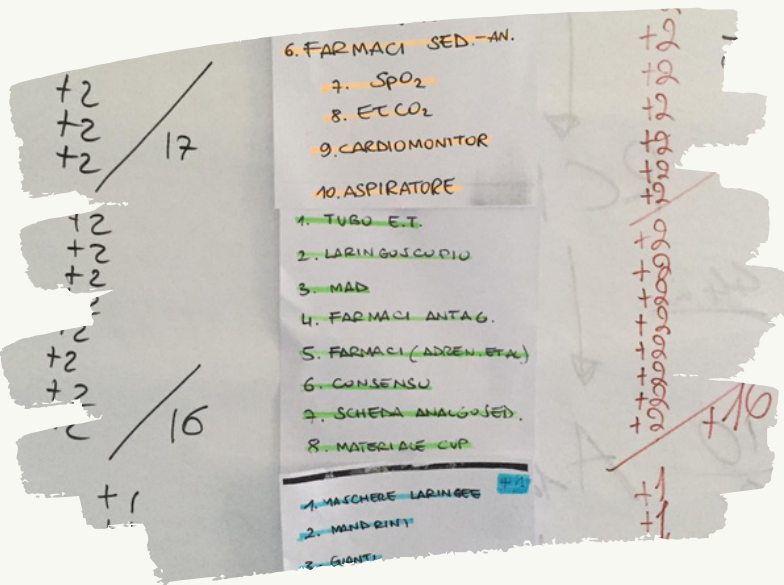 6. FARMACI SED.-AN.
7. SpO₂
8. ETCO₂
9. CARDIOMONITOR
10. ASPIRATORE
1. TUBO E.T.
2. LARINGOSCOPIO
3. MAD
4. FARMACI ANTAG.
5. FARMACI (ADREN. ET AL)
6. CONSENSO
7. SCHEDA ANALGOSED.
8. MATERIALE CVP
+1
1. MASCHERE LARINGEE
2. MANDRINI
3. GUANTI
+2
+2
+2
17
+2
+2
+2
+2
+2
16
+1
+2
+2
+2
+2
+2
+2
+2
+2
+2
+2
+2
+2
+2
+2
+16
+1
+1